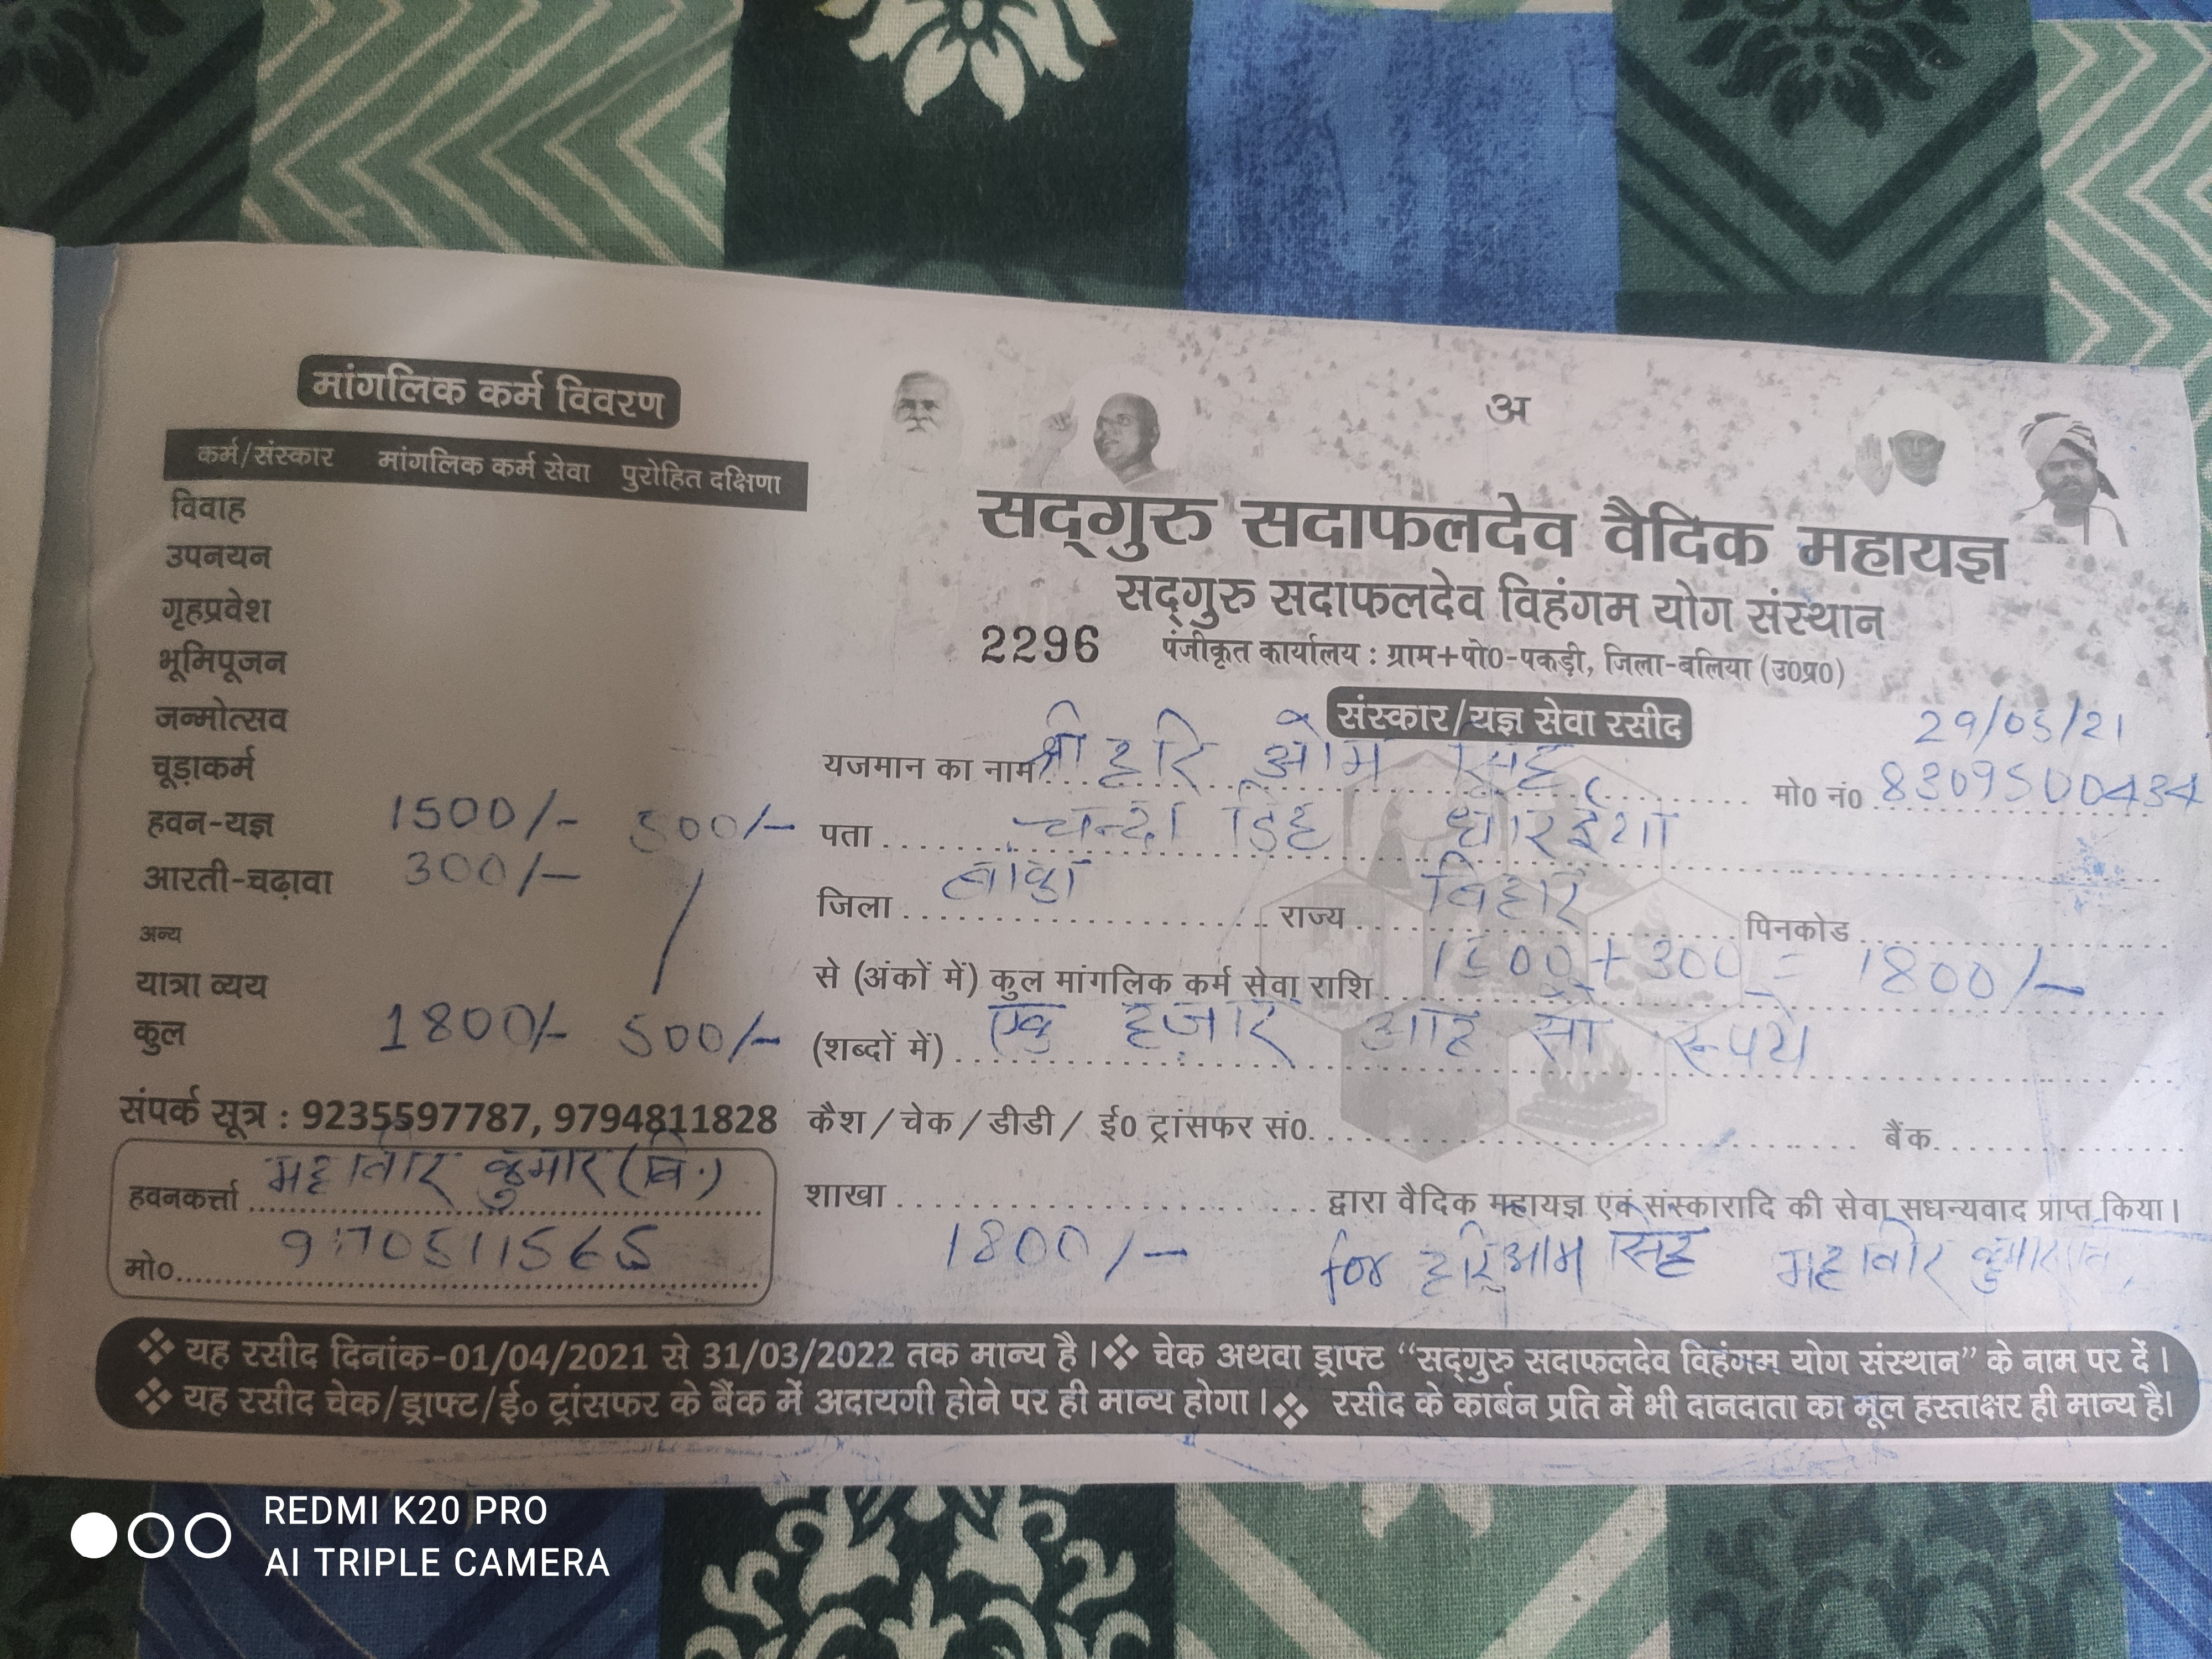 मांगलिक कर्म विवरण
कर्म/संस्कार मांगलिक कर्म सेवा पुरोहित दक्षिणा
विवाह
उपनयन
गृहप्रवेश
भूमिपूजन
जन्मोत्सव
चूड़ाकर्म
हवन-यज्ञ 1500/- 500/-
आरती-चढ़ावा 300/-
अन्य
यात्रा व्यय
कुल 1800/- 500/-
संपर्क सूत्र : 9235597787, 9794811828
हवनकर्त्ता महावीर कुमार (वि.)
मो०
अ
सद्गुरु सदाफलदेव वैदिक महायज्ञ
सद्गुरु सदाफलदेव विहंगम योग संस्थान
2296 पंजीकृत कार्यालय : ग्राम+पो0-पकड़ी, जिला-बलिया (उ0प्र0)
संस्कार/यज्ञ सेवा रसीद 29/05/21
यजमान का नाम श्री हरि ओम सिंह मो0 नं0 8309500434
पता चन्दा डिह धोरईया
जिला बांका राज्य बिहार पिनकोड
से (अंकों में) कुल मांगलिक कर्म सेवा राशि 1500+300 = 1800/-
(शब्दों में) एक हजार आठ सौ रूपये
कैश/चेक/डीडी/ ई0 ट्रांसफर सं0. बैंक
शाखा द्वारा वैदिक महायज्ञ एवं संस्कारादि की सेवा सधन्यवाद प्राप्त किया।
1800/- for हरिओम सिंह महावीर कुमार
❖ यह रसीद दिनांक-01/04/2021 से 31/03/2022 तक मान्य है।❖ चेक अथवा ड्राफ्ट “सद्गुरु सदाफलदेव विहंगम योग संस्थान” के नाम पर दें।
❖ यह रसीद चेक/ड्राफ्ट/ई० ट्रांसफर के बैंक में अदायगी होने पर ही मान्य होगा।❖ रसीद के कार्बन प्रति में भी दानदाता का मूल हस्ताक्षर ही मान्य है।
REDMI K20 PRO
AI TRIPLE CAMERA